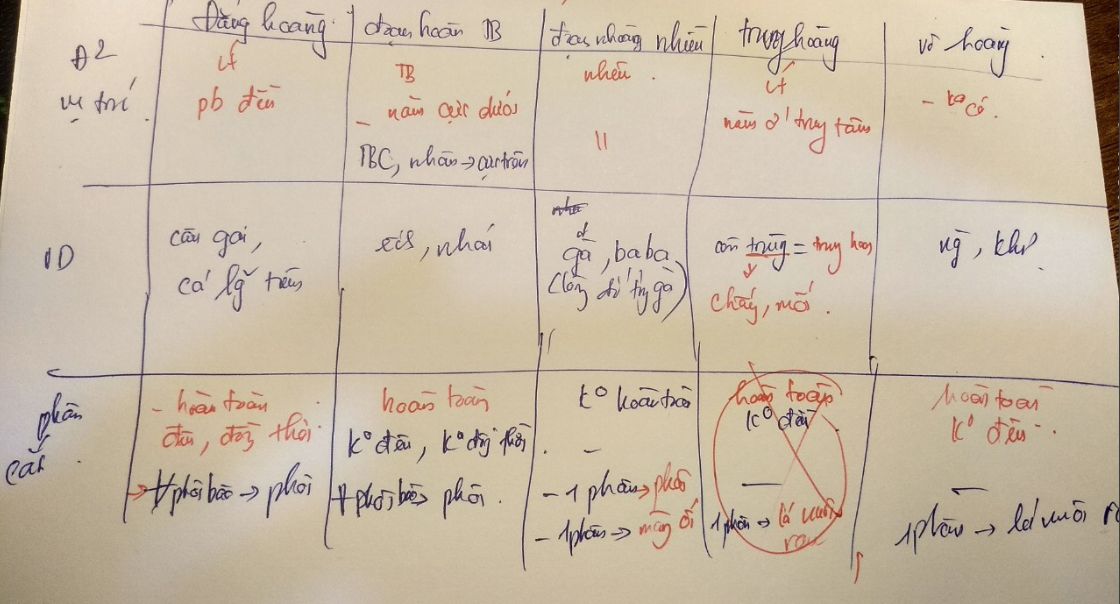 Đẳng hoàng đoạn hoàn TB đoạn nhoàng nhiều trung hoàng vô hoàng
Đ2
vị trí
ít
pb đều
TB
- nằm cực dưới
TBC, nhân → cực trên
nhều
ít
nằm ở trug tâm
- k° có
VD
cầu gai,
cá lg tiêm
ếch, nhái
gà, baba
côn trùng = trug hoàng
chấy, mối.
phân
cắt
- hoàn toàn
đều, đồg thời
→ ∀ phôi bào → phôi
hoàn toàn
k° đều, k° đồg thời
∀ phôi bào → phôi.
k° hoàn toàn
-
- 1 phần → phôi
- 1 phần → màg ối
hoàn toàn
k° đều
1 phần → lá nuôi
hoàn toàn
k° đều
1 phần → lá nuôi